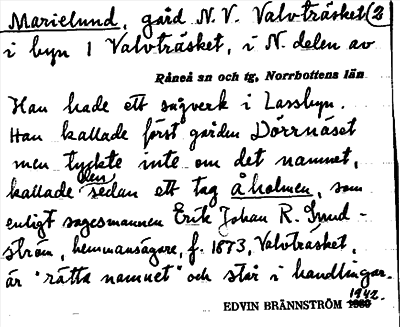 Marielund, gård N.V. Valvträsket (2
i byn 1 Valvträsket, i N. delen av
Råneå sn och tg, Norrbottens län
Han hade ett sågverk i Lassbyn.
Han kallade först gården Dörrnäset
men tyckte inte om det namnet,
kallade den sedan ett tag åholmen, som
enligt sagesmannen Erik Johan R. Sund-
ström, hemmansägare, f. 1873, Valvträsket,
är "rätta namnet" och står i handlingar.
1942.
EDVIN BRÄNNSTRÖM